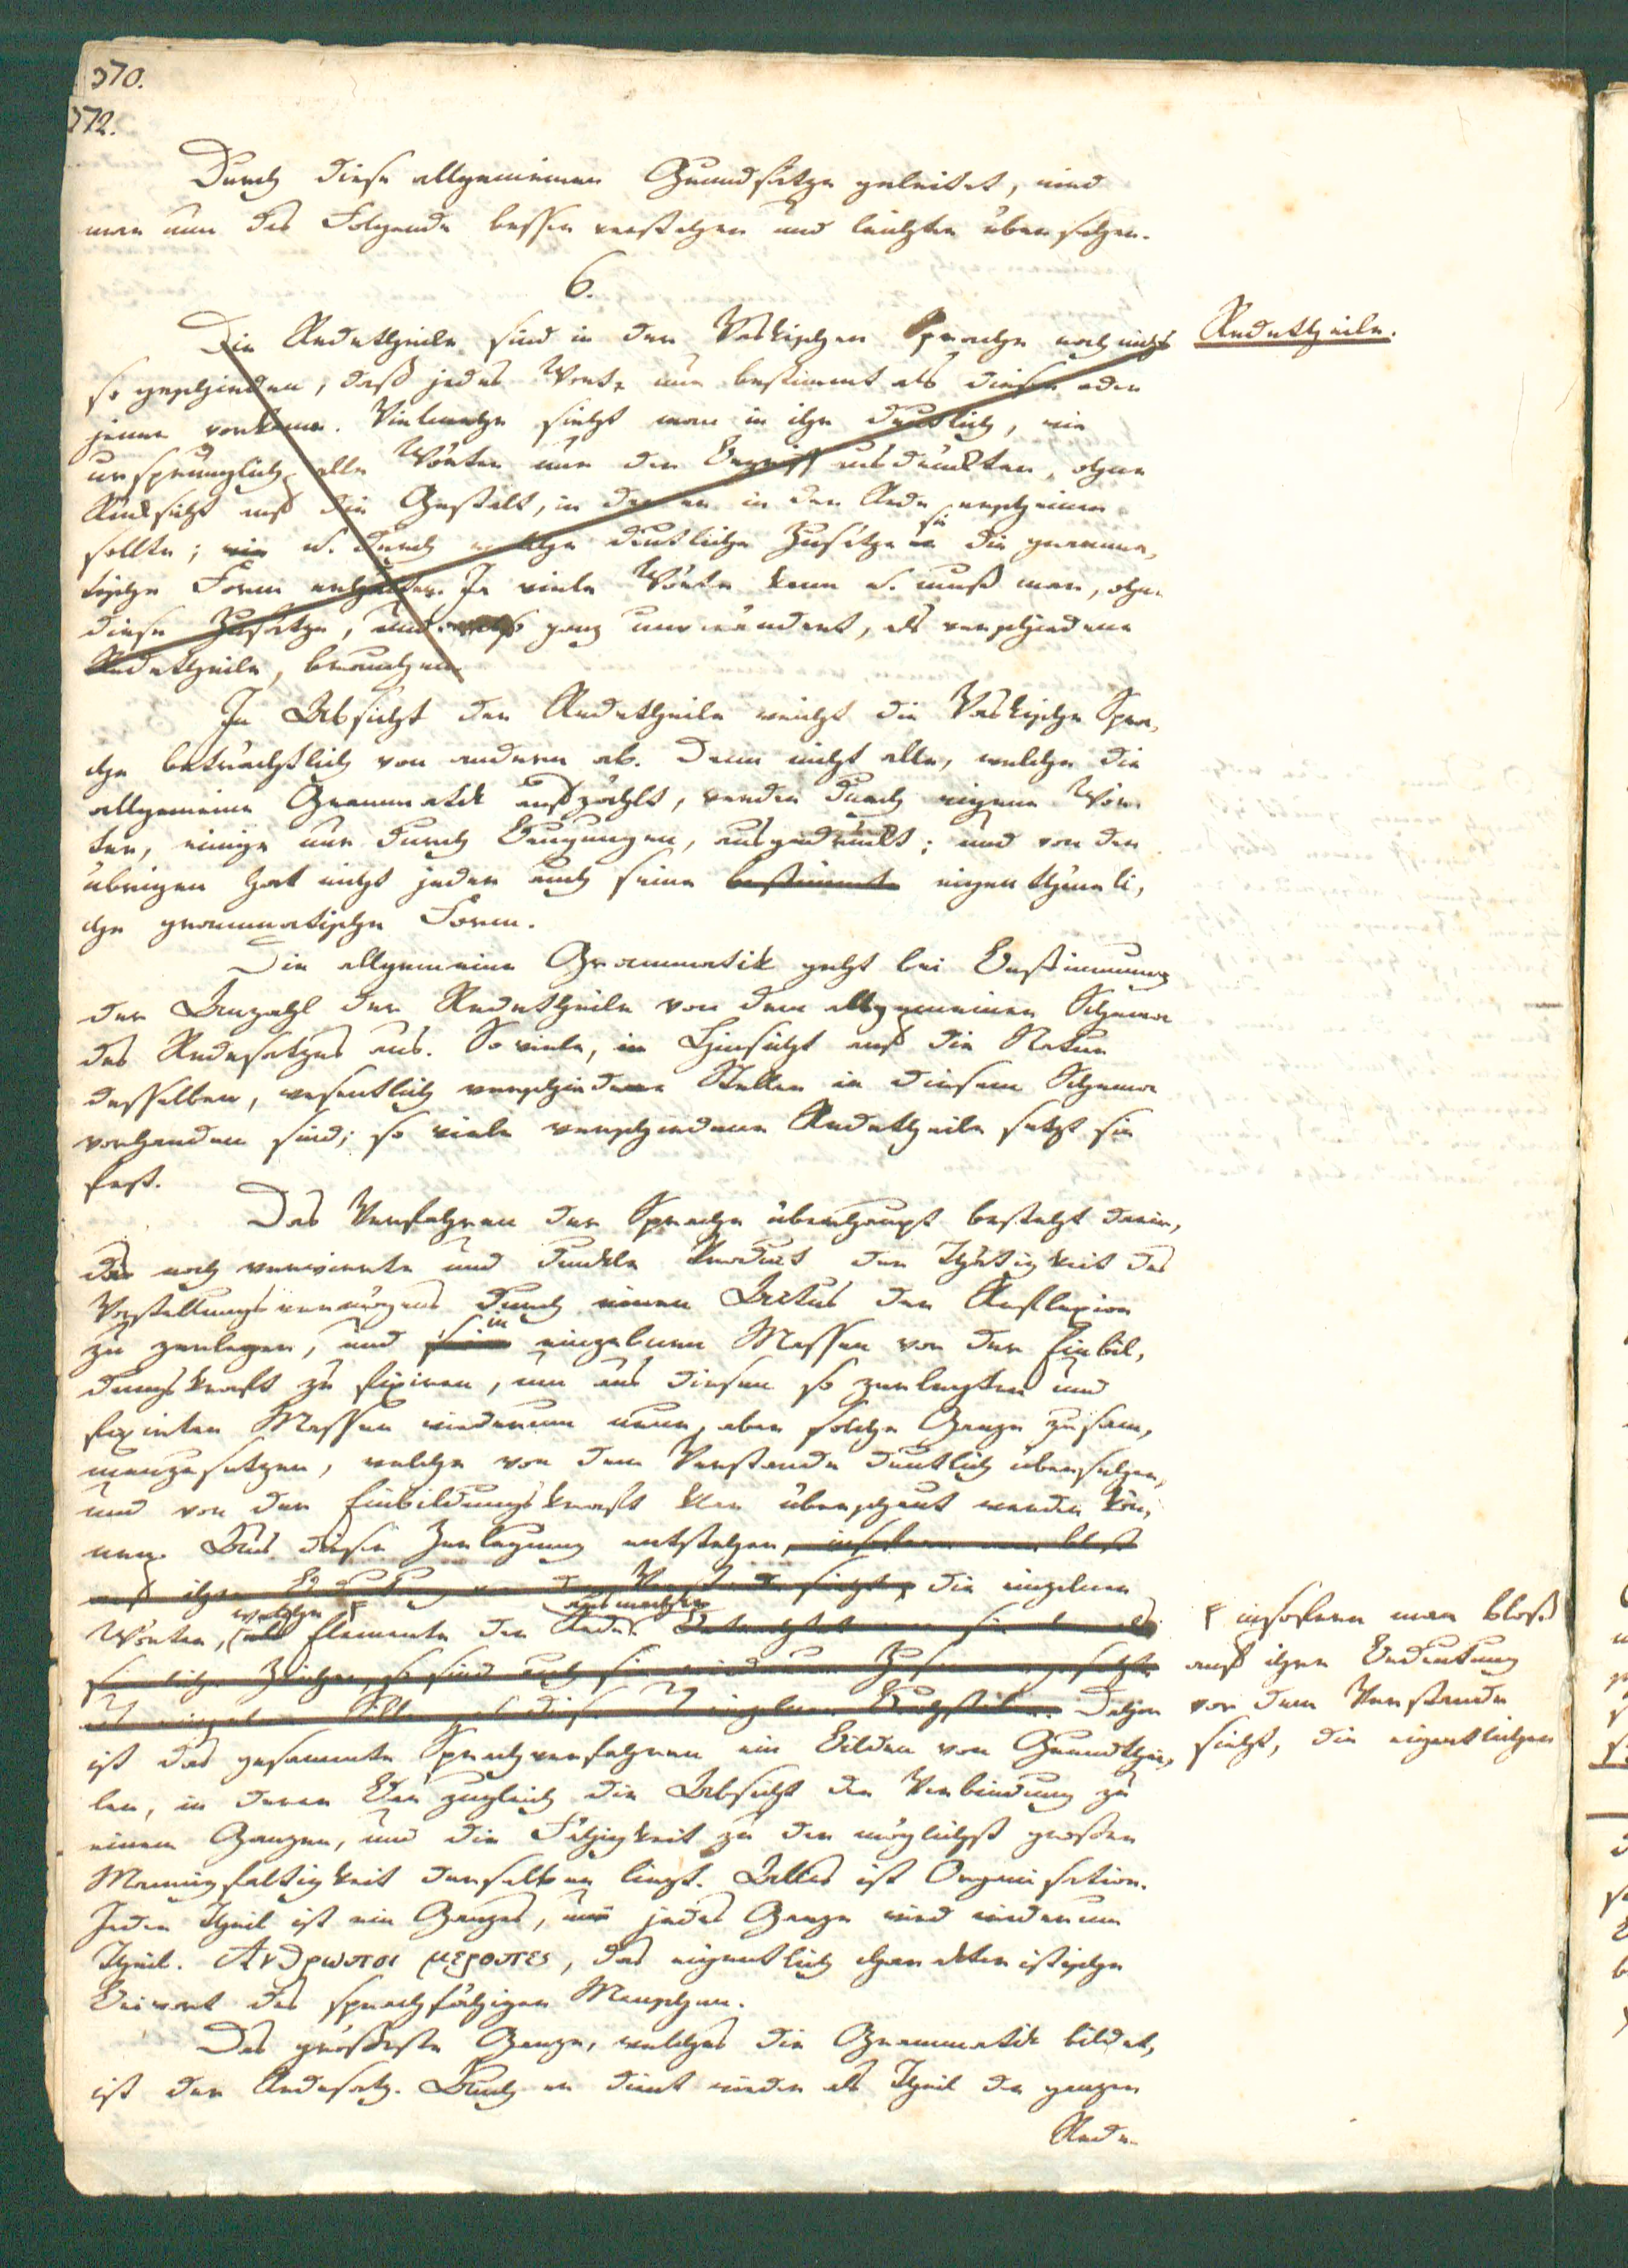 370.
372.
Durch diese allgemeinen Grundsätze geleitet, wird
man nun das Folgende besser verstehen und leichter übersehen.
6.
Redetheile.
Die Redetheile sind in der Vaskischen Sprache noch nicht
so geschieden, daß jedes Wort nur bestimmt als dieser oder
jener vorkäme. Vielmehr sieht man in ihr deutlich, wie
ursprünglich alle Wörter nur den Begriff ausdrückten, ohne
Rücksicht auf die Gestalt, in der er in der Rede erscheinen
sollte; wie u. durch welche deutliche Zusätze sie die gramma-
tische Form erhielten. Ja viele Wörter kann u. muß man, ohne
diese Zusätze, und ganz unverändert, als verschiedene
Redetheile, brauchen.
In Absicht der Redetheile weicht die Vaskische Spra-
che beträchtlich von andern ab. Denn nicht alle, welche die
allgemeine Grammatik aufzählt, werden durch eigene Wör-
ter, einige nur durch Beugungen, ausgedrückt; und von den
übrigen hat nicht jeder auch seine bestimmte eigenthümli-
che grammatische Form.
Die allgemeine Grammatik geht bei Bestimmung
der Anzahl der Redetheile von dem allgemeinen Schema
des Redesatzes aus. So viele, in Hinsicht auf die Natur
desselben, wesentlich verschiedene Stellen in diesem Schema
vorhanden sind; so viele verschiedene Redetheile setzt sie
fest.
Das Verfahren der Sprache überhaupt besteht darin,
das noch verwirrte und dunkle Product der Thätigkeit des
Vorstellungsvermögens durch einen Actus der Reflexion
zu zerlegen, und in einzelnen Massen vor der Einbil-
dungskraft zu fixiren, um aus diesen so zerlegten und
fixirten Massen wiederum neue, aber solche Ganze zusam-
menzusetzen, welche von dem Verstande deutlich übersehen,
und von der Einbildungskraft klar überschaut werden kön-
nen. Aus dieser Zerlegung entstehen, insofern man bloß
auf ihre Bedeutung vor dem Verstande sieht, die einzelnen
Wörter, welche Elemente der Rede ausmachen
sinnliche Zeichen, so sind auch sie wiederum Zusammengesetzte
Daher
ist das gesammte Sprachverfahren ein Bilden von Grundthei-
len, in deren Bau zugleich die Absicht der Verbindung zu
einem Ganzen, und die Fähigkeit zu der möglichst großen
Mannigfaltigkeit derselben liegt. Alles ist Organisation.
Jeder Theil ist ein Ganzes, und jedes Ganze wird wiederum
Theil. Ανθρωποι μεροπες, das eigentlich charakteristische
Beiwort des sprachfähigen Menschen.
Das größeste Ganze, welches die Grammatik bildet,
ist der Redesatz. Auch er dient wieder als Theil der ganzen
Rede.
insofern man bloß
auf ihre Bedeutung
vor dem Verstande
sieht, die eigentlichen